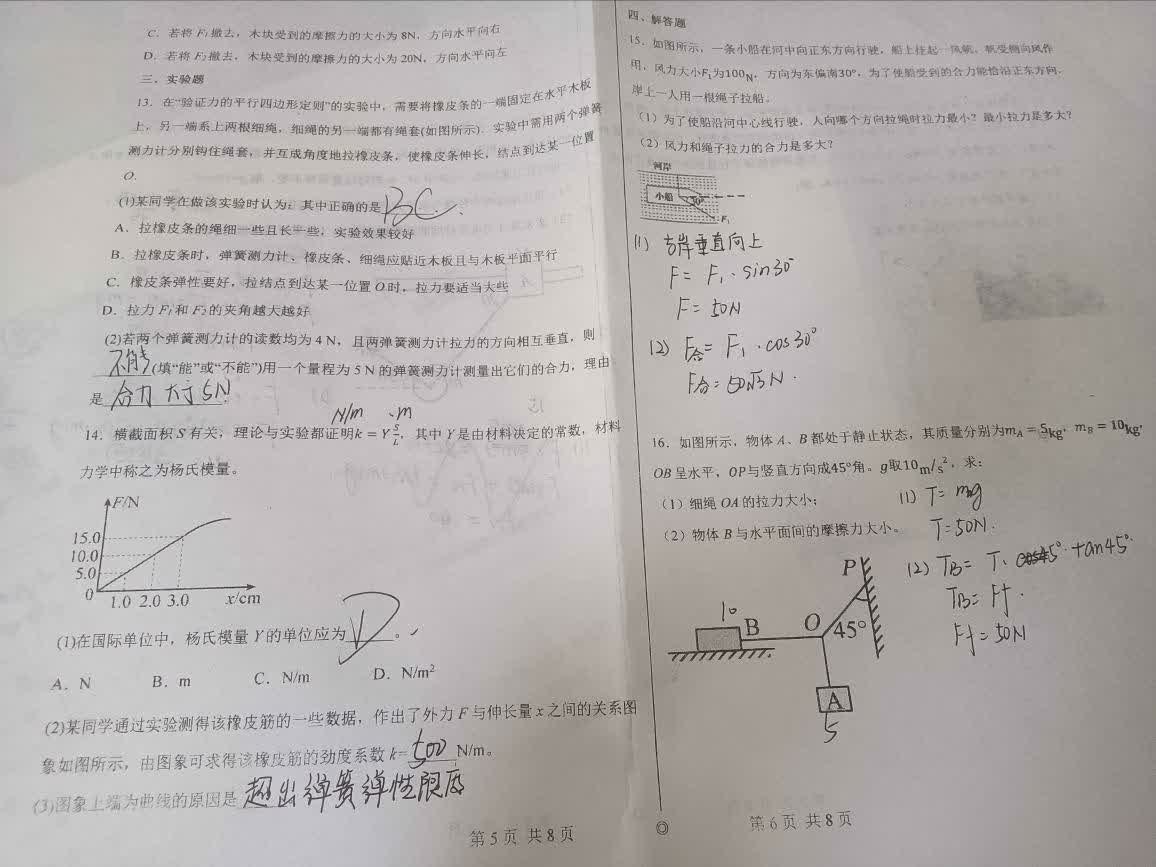 C．若将 F₁撤去，木块受到的摩擦力的大小为 8N，方向水平向右
D．若将 F₂撤去，木块受到的摩擦力的大小为 20N，方向水平向左
三．实验题
13．在“验证力的平行四边形定则”的实验中，需要将橡皮条的一端固定在水平木板
上，另一端系上两根细绳，细绳的另一端都有绳套(如图所示)．实验中需用两个弹簧
测力计分别钩住绳套，并互成角度地拉橡皮条，使橡皮条伸长，结点到达某一位置
O.
(1)某同学在做该实验时认为：其中正确的是 BC .
A．拉橡皮条的绳细一些且长一些，实验效果较好
B．拉橡皮条时，弹簧测力计、橡皮条、细绳应贴近木板且与木板平面平行
C．橡皮条弹性要好，拉结点到达某一位置 O 时，拉力要适当大些
D．拉力 F₁和 F₂的夹角越大越好
(2)若两个弹簧测力计的读数均为 4 N，且两弹簧测力计拉力的方向相互垂直，则
不能 (填“能”或“不能”)用一个量程为 5 N 的弹簧测力计测量出它们的合力，理由
是 合力大于5N .
N/m .m
14．横截面积 S 有关，理论与实验都证明k = Y S/L，其中 Y 是由材料决定的常数，材料
力学中称之为杨氏模量。
F/N
15.0
10.0
5.0
0 1.0 2.0 3.0 x/cm
(1)在国际单位中，杨氏模量 Y 的单位应为 D 。
A．N B．m C．N/m D．N/m²
(2)某同学通过实验测得该橡皮筋的一些数据，作出了外力 F 与伸长量 x 之间的关系图
象如图所示，由图象可求得该橡皮筋的劲度系数 k= 500 N/m。
(3)图象上端为曲线的原因是 超出弹簧弹性限度
第 5 页 共 8 页
四、解答题
15．如图所示，一条小船在河中向正东方向行驶，船上挂起一风帆，帆受侧向风作
用，风力大小F₁为100N，方向为东偏南30°，为了使船受到的合力能恰沿正东方向，
岸上一人用一根绳子拉船。
（1）为了使船沿河中心线行驶，人向哪个方向拉绳时拉力最小？最小拉力是多大？
（2）风力和绳子拉力的合力是多大？
河岸
小船 30°
F₁
(1) 与岸垂直向上
F = F₁ · sin30°
F = 50N
(2) F合 = F₁ · cos30°
F合 = 50√3 N .
16．如图所示，物体 A、B 都处于静止状态，其质量分别为mA = 5kg，mB = 10kg，
OB 呈水平，OP与竖直方向成45°角。g取10m/s²，求：
（1）细绳 OA 的拉力大小；
（2）物体 B 与水平面间的摩擦力大小。
(1) T = mg
T = 50N .
(2) TB = T · tan45°
TB = Ff .
Ff = 50N
P
10
B O 45°
A
5
第 6 页 共 8 页